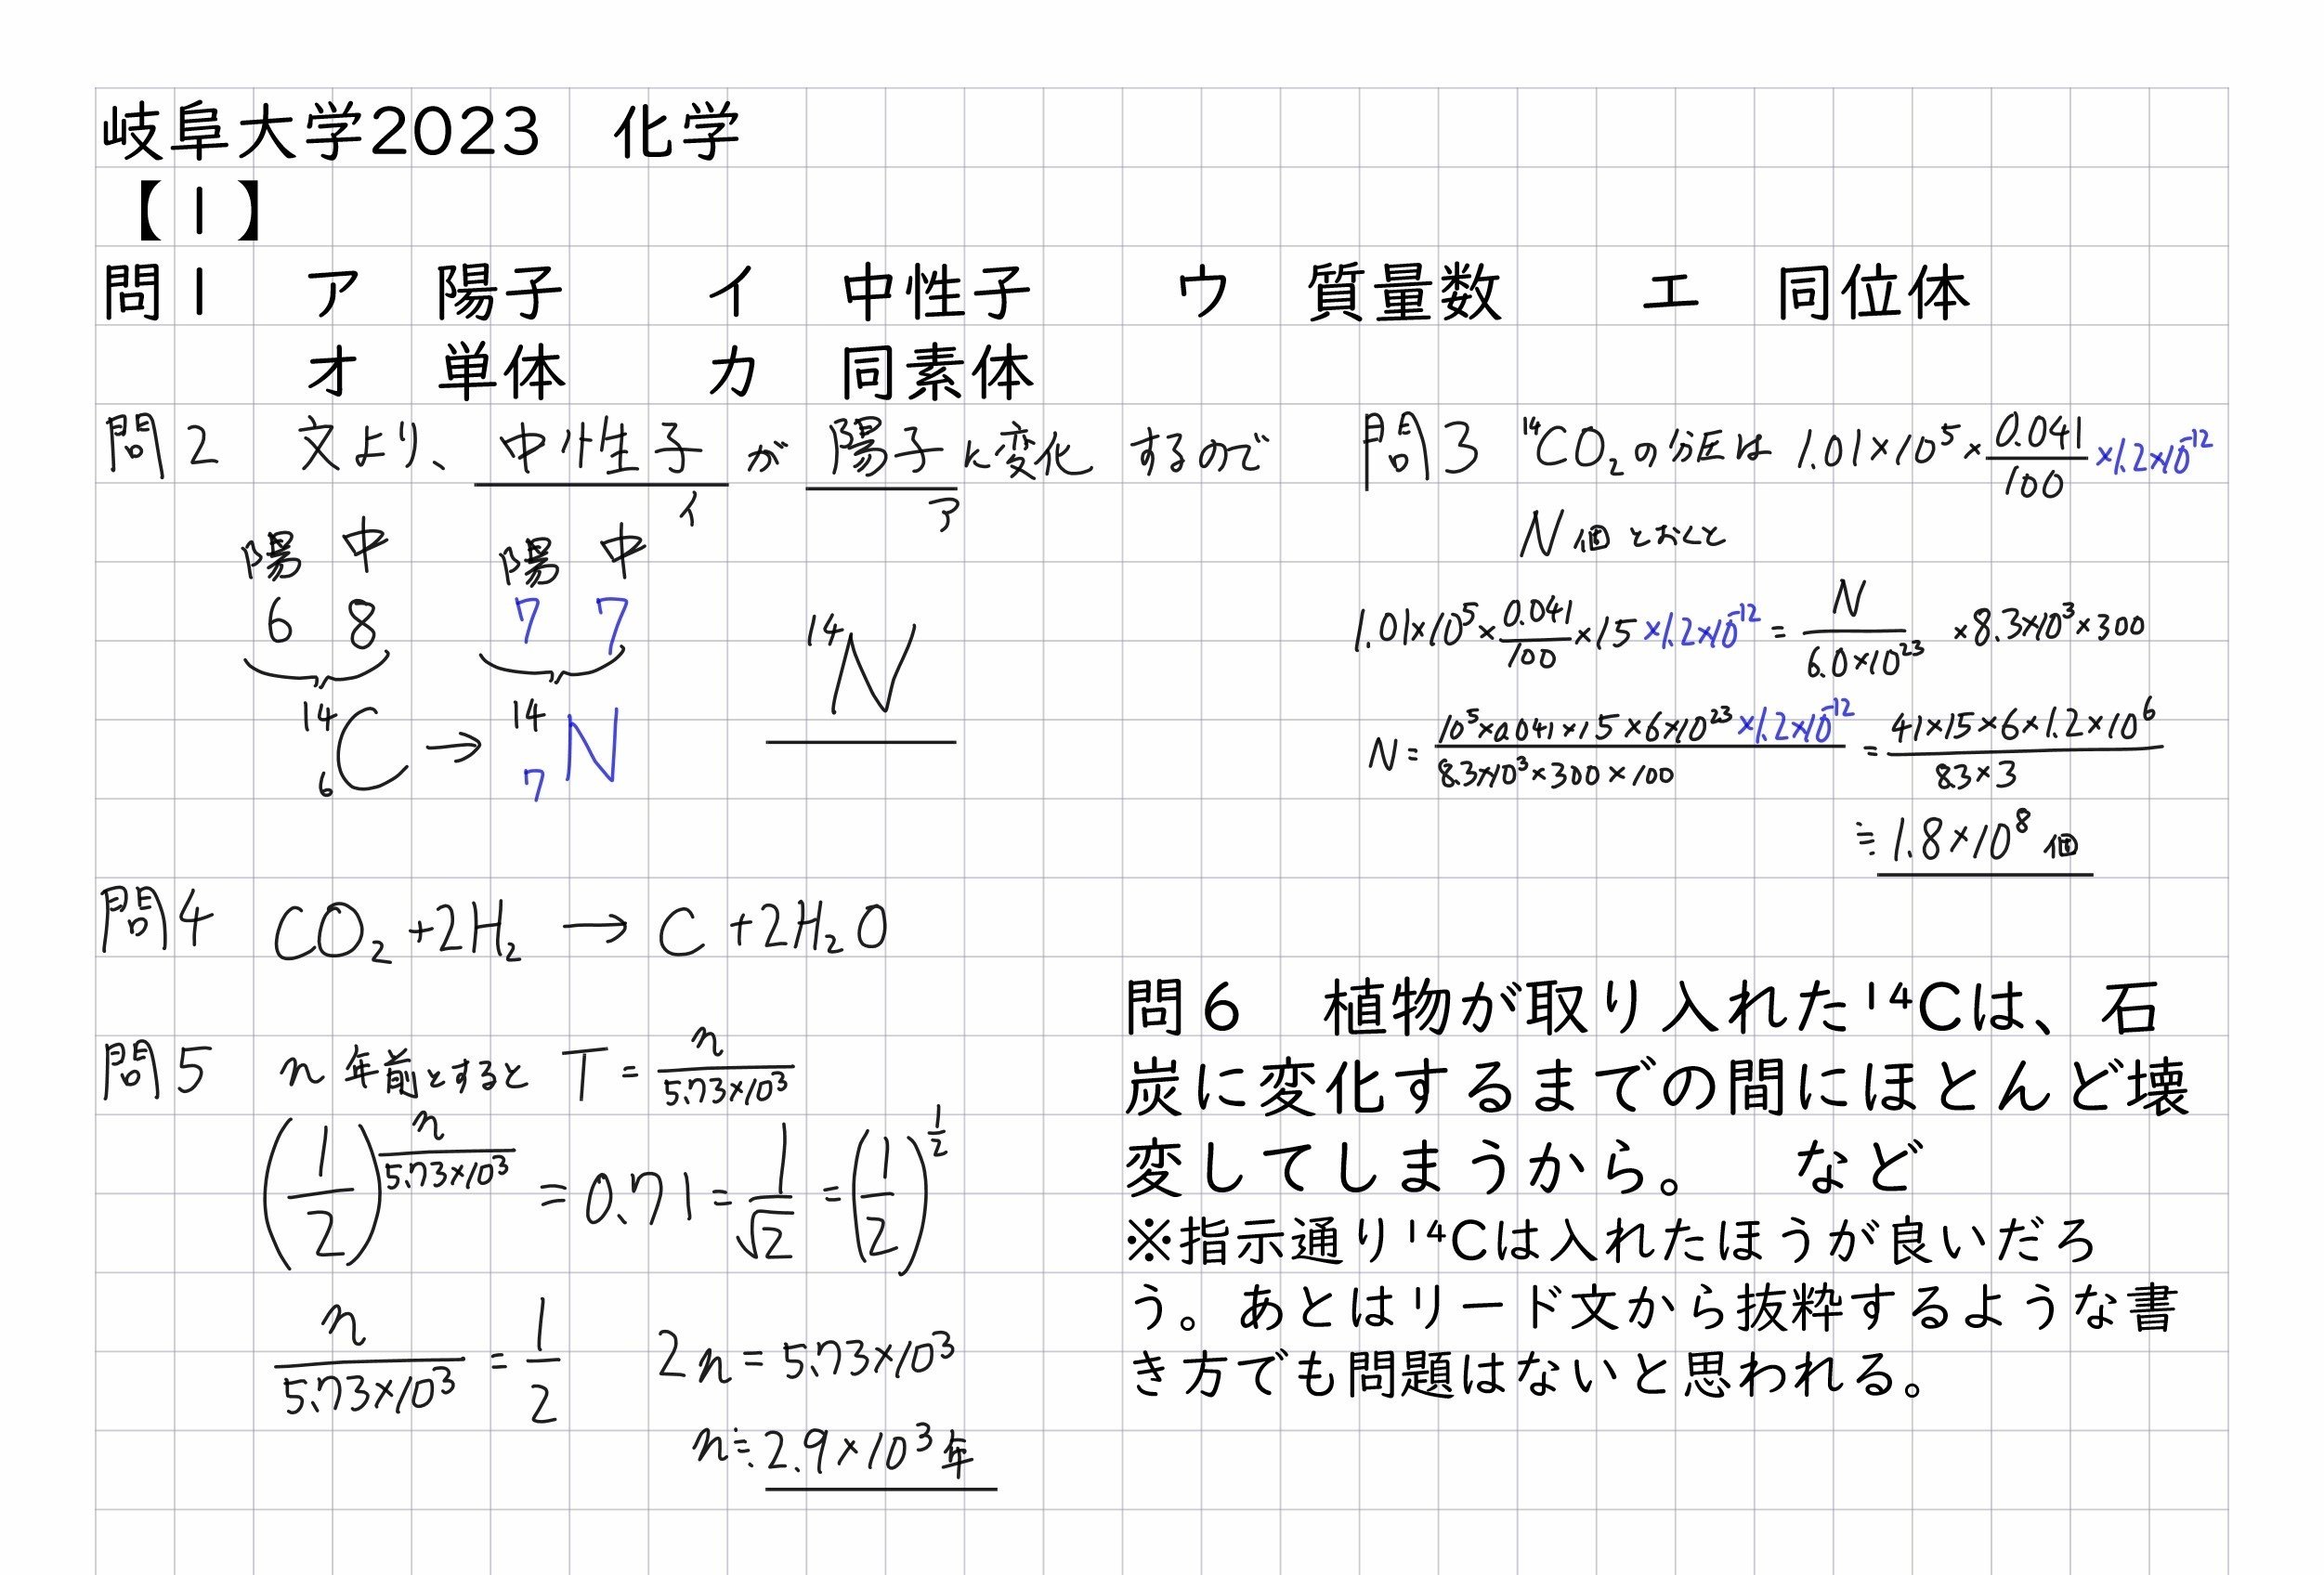 岐阜大学2023　化学
【１】
問１　ア　陽子　　イ　中性子　　ウ　質量数　　エ　同位体
オ　単体　　カ　同素体
問2　文より、中性子が陽子に変化するので
イ　ア
陽 中　陽 中
6 8　7 7
¹⁴₆C → ¹⁴₇N　¹⁴N
問3　¹⁴CO₂の分圧は 1.01×10⁵×0.041/100×1.2×10⁻¹²
N個とおくと
1.01×10⁵×0.041/100×15×1.2×10⁻¹² = N/6.0×10²³ ×8.3×10³×300
N = 10⁵×0.041×15×6×10²³×1.2×10⁻¹²/8.3×10³×300×100 = 41×15×6×1.2×10⁶/83×3
≒ 1.8×10⁸個
問4　CO₂+2H₂ → C+2H₂O
問5　n年前とすると T = n/5.73×10³
(1/2)^(n/5.73×10³) = 0.71 = 1/√2 = (1/2)^(1/2)
n/5.73×10³ = 1/2　2n = 5.73×10³
n≒2.9×10³年
問６　植物が取り入れた¹⁴Cは、石
炭に変化するまでの間にほとんど壊
変してしまうから。　など
※指示通り¹⁴Cは入れたほうが良いだろ
う。あとはリード文から抜粋するような書
き方でも問題はないと思われる。